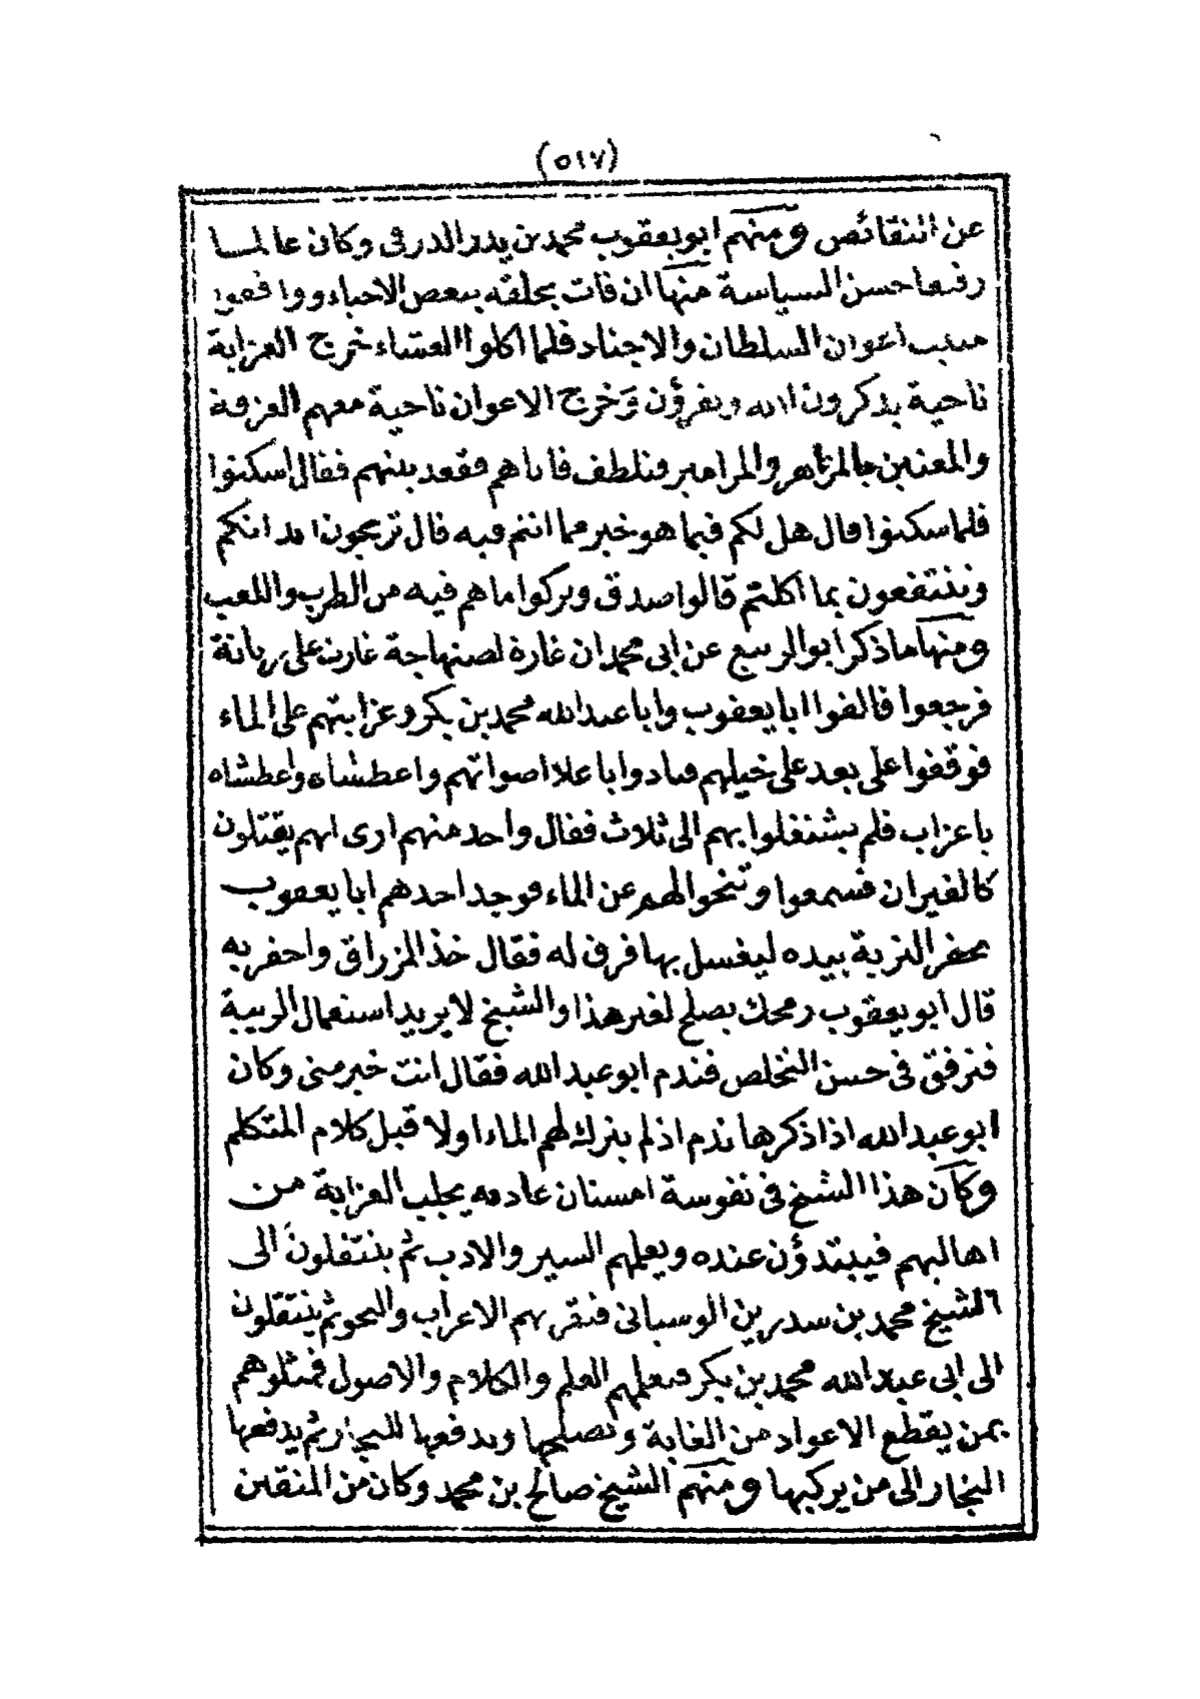 (٥١٧)
عن النقائص ومنهم ابو يعقوب محمد بن يدر الدرفى وكان عالما
رفيعا حسن السياسة منها ان فات بحلقه ببعض الاحياء ووافقوا
مبيت اعوان السلطان والاجناد فلما اكلوا العشاء خرج العزابة
ناحية يذكرون الله ويقرؤن وخرج الاعوان ناحية معهم العزفة
والمغنين بالمزاهر والمزامير فتلطف فاتاهم فقعد بينهم فقال اسكتوا
فلما سكتوا قال هل لكم فيما هو خير مما انتم فيه قال تريحون ابدانكم
وتنتفعون بما اكلتم قالوا صدق وتركوا ما هم فيه من الطرب واللعب
ومنها ما ذكر ابو الربيع عن ابى محمد ان غارة لصنهاجة غارت على
فرجعوا فالفوا ابا يعقوب وابا عبد الله محمد بن بكر وعزابتهم على الماء
فوقفوا على بعد على خيلهم فنادوا باعلا اصواتهم واعطشاه واعطشاه
يا عزاب فلم يشتغلوا بهم الى ثلاث فقال واحد منهم ارى انهم يقتلون
كالفيران فسمعوا وتنحوا لهم عن الماء فوجد احدهم ابا يعقوب
يحفر التربة بيده ليغسل بها فرق له فقال خذ المزراق واحفر به
قال ابو يعقوب رمحك يصلح لغير هذا والشيخ لا يريد استعمال الريبة
فترفق فى حسن التخلص فندم ابو عبد الله فقال انت خير منى وكان
ابو عبد الله اذا ذكرها ندم اذ لم يترك لهم الماء اولا قبل كلام المتكلم
وكان هذا الشيخ فى نفوسة امسنان عادته يجلب العزابة من
اهاليهم فيبتدؤن عنده ويعلمهم السير والادب ثم ينتقلون الى
الشيخ محمد بن سدرين الوسيانى فتقريهم الاعراب والنحو ثم ينتقلون
الى ابى عبد الله محمد بن بكر فيعلمهم العلم والكلام والاصول فمثلوهم
بمن يقطع الاعواد من الغابة وتصلحها ويدفعها للنجار ثم يدفعها
النجار الى من يركبها ومنهم الشيخ صالح بن محمد وكان من المتقين